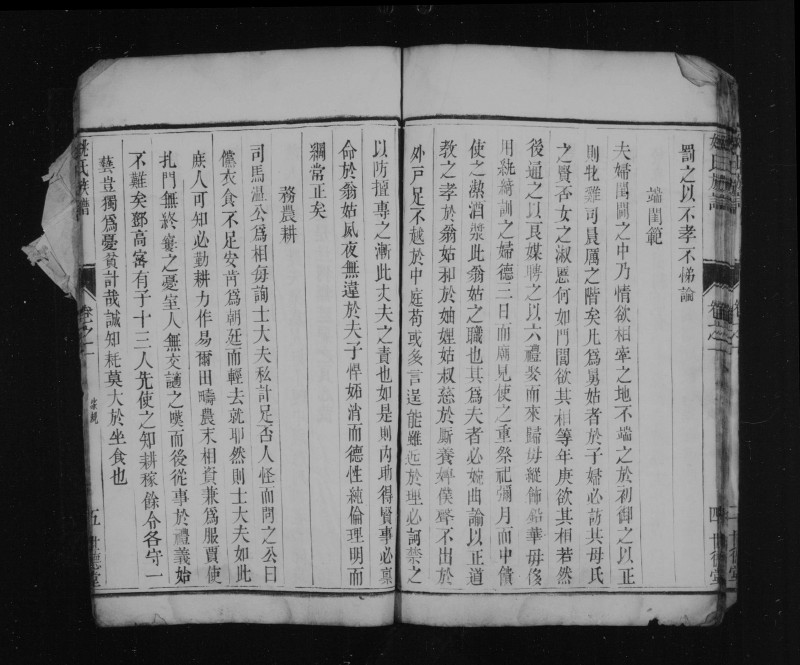 罰之以不孝不悌論
端閨範
夫婦閨闥之中乃情欲相牽之地不端之於初御之以正
則牝雞司晨厲之階矣凡為舅姑者於子婦必訪其母氏
之賢否女之淑慝何如門閭欲其相等年庚欲其相若然
後通之以良媒聘之以六禮娶而來歸毋縱飾鉛華毋侈
用紈綺訓之婦德三日而廟見使之重祭祀彌月而中饋
使之熱酒漿此翁姑之職也其為夫者必婉曲諭以正道
教之孝於翁姑和於妯娌姑叔慈於廝養婢僕聲不出於
外戶足不越於中庭苟或多言逞能雖近於理必訶禁之
四 世德堂
姚氏族譜
卷之一
以防擅專之漸此丈夫之責也如是則內助得賢事必禀
命於翁姑夙夜無違於夫子悍妬消而德性純倫理明而
綱常正矣
務農耕
司馬溫公為相每詢士大夫私計足否人怪而問之公曰
儻衣食不足安肯為朝廷而輕去就耶然則士大夫如此
庶人可知必勤耕力作易爾田疇農末相資兼為服賈使
扎門無終窶之憂室人無交讁之嘆而後從事於禮義始
不難矣鄧高密有子十三人先使之知耕稼餘令各守一
藝豈獨為憂貧計哉誠知耗莫大於坐食也
姚氏族譜
卷之一
五 世德堂